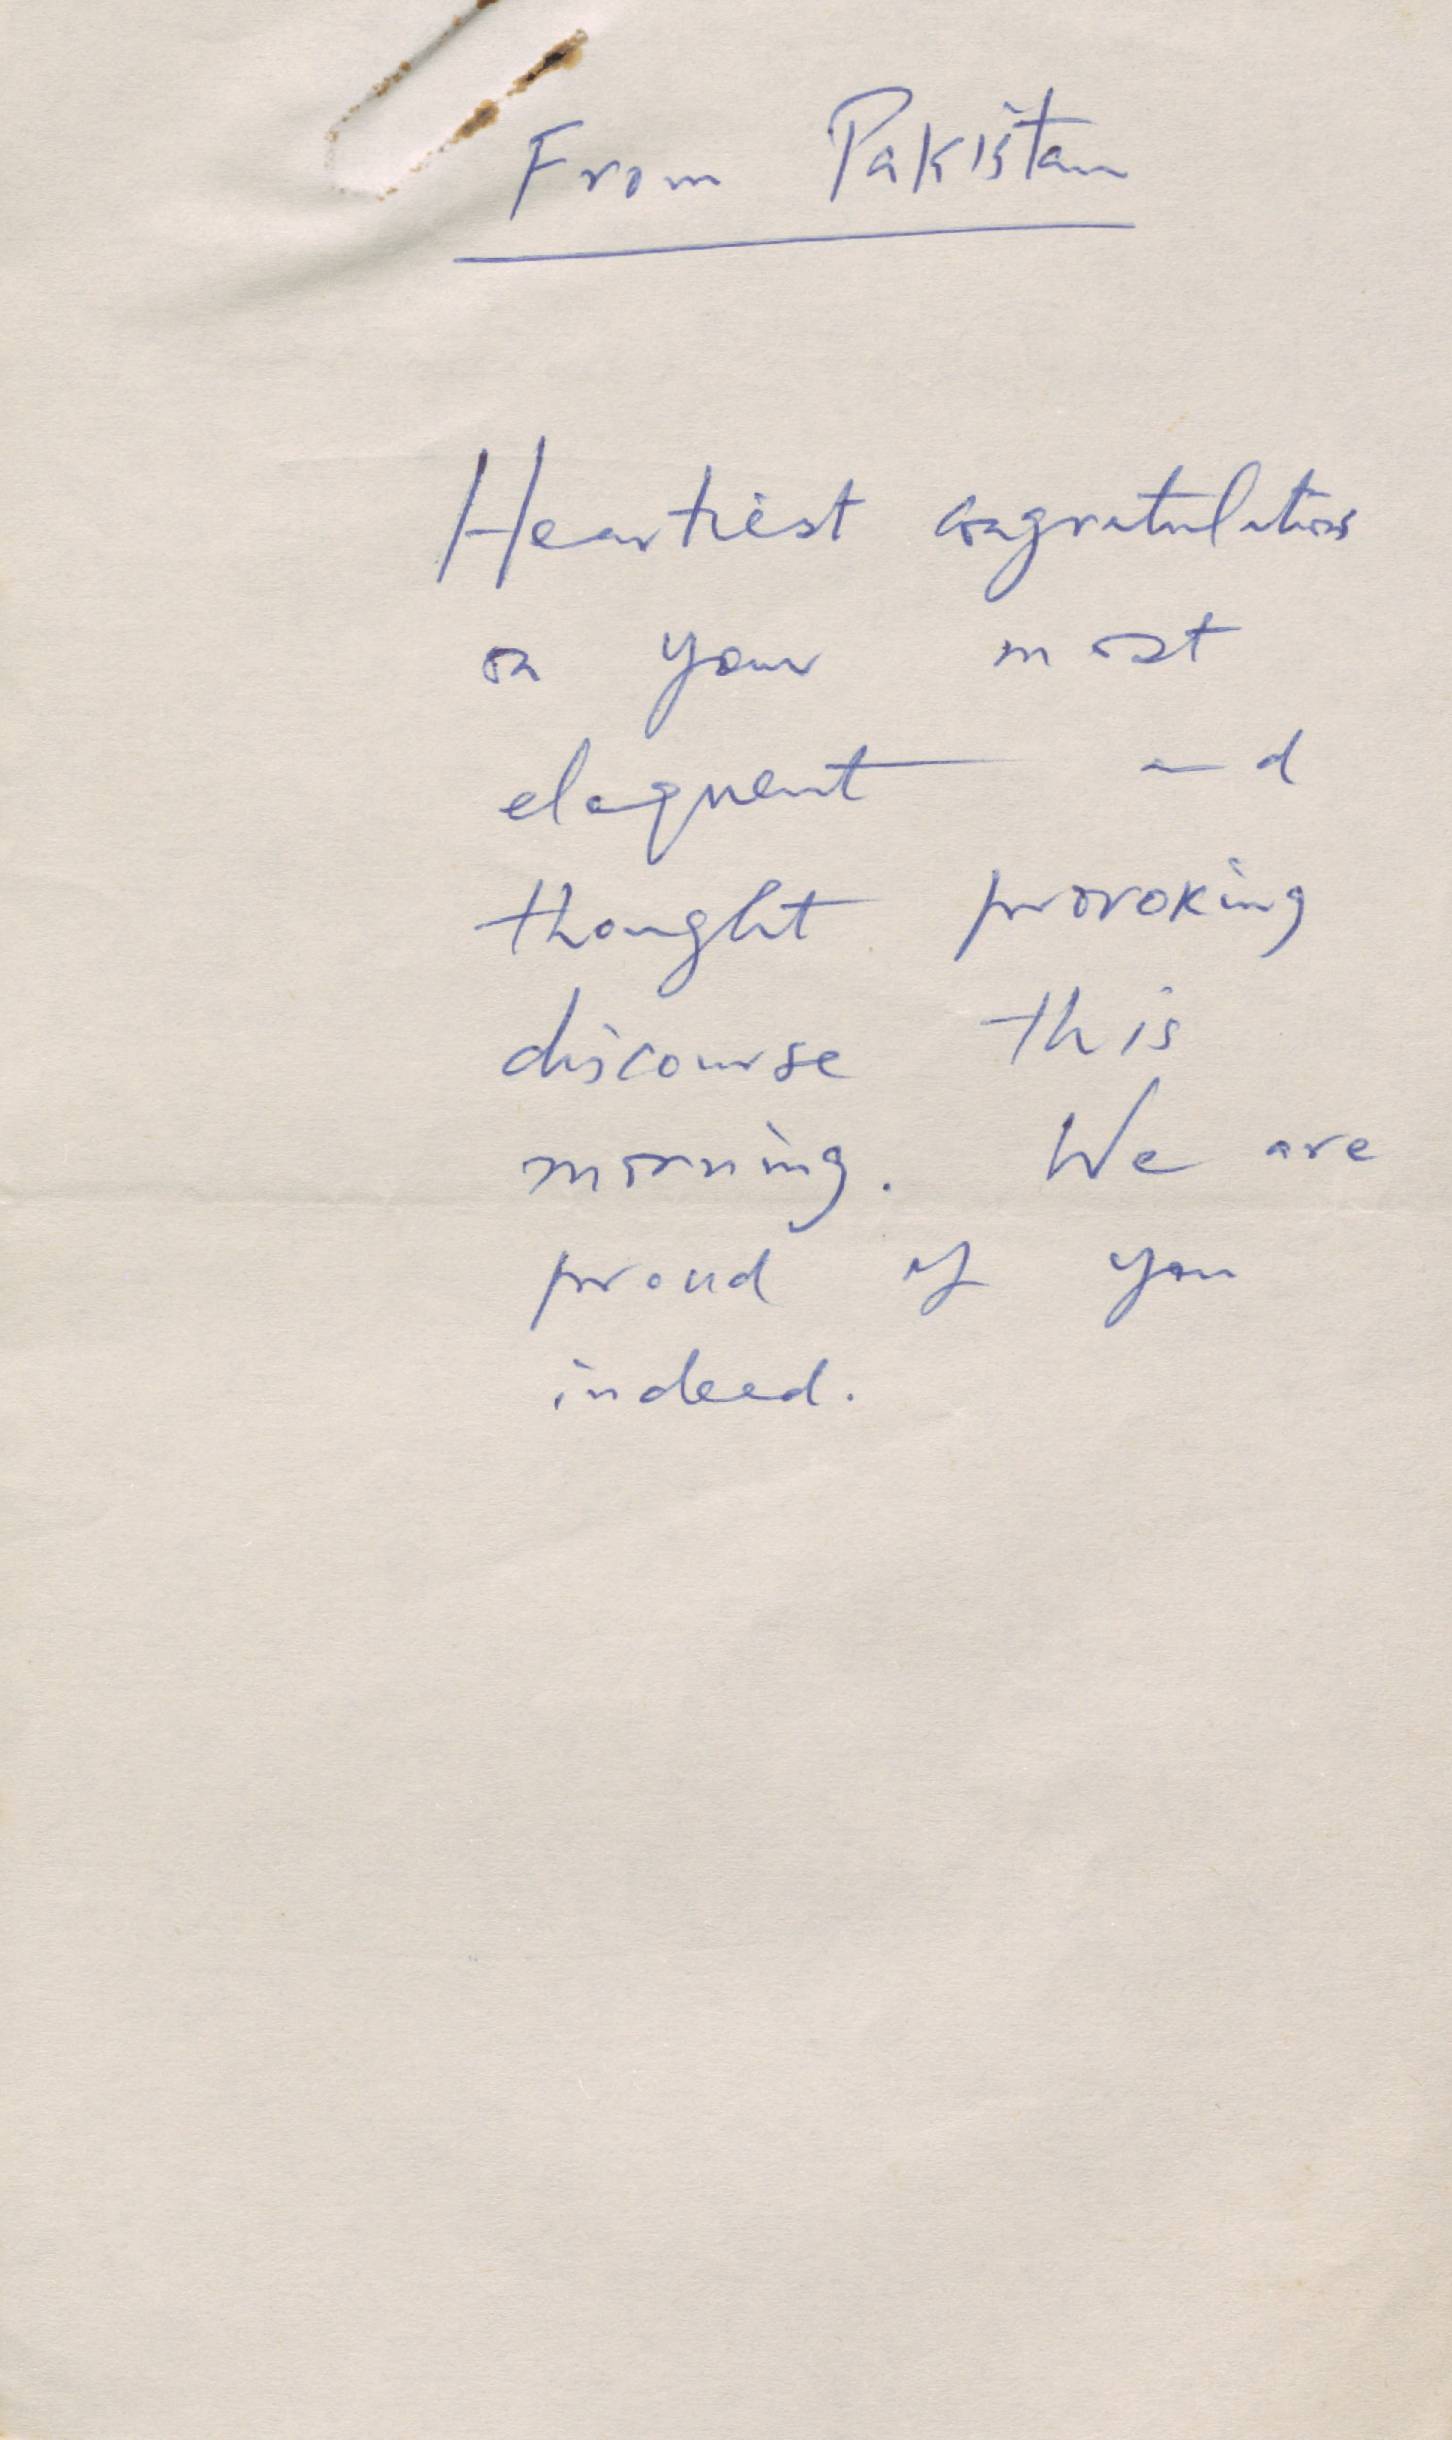 From Pakistan
Heartiest congratulations
on your most
eloquent and
thought provoking
discourse this
morning. We are
proud of you
indeed.